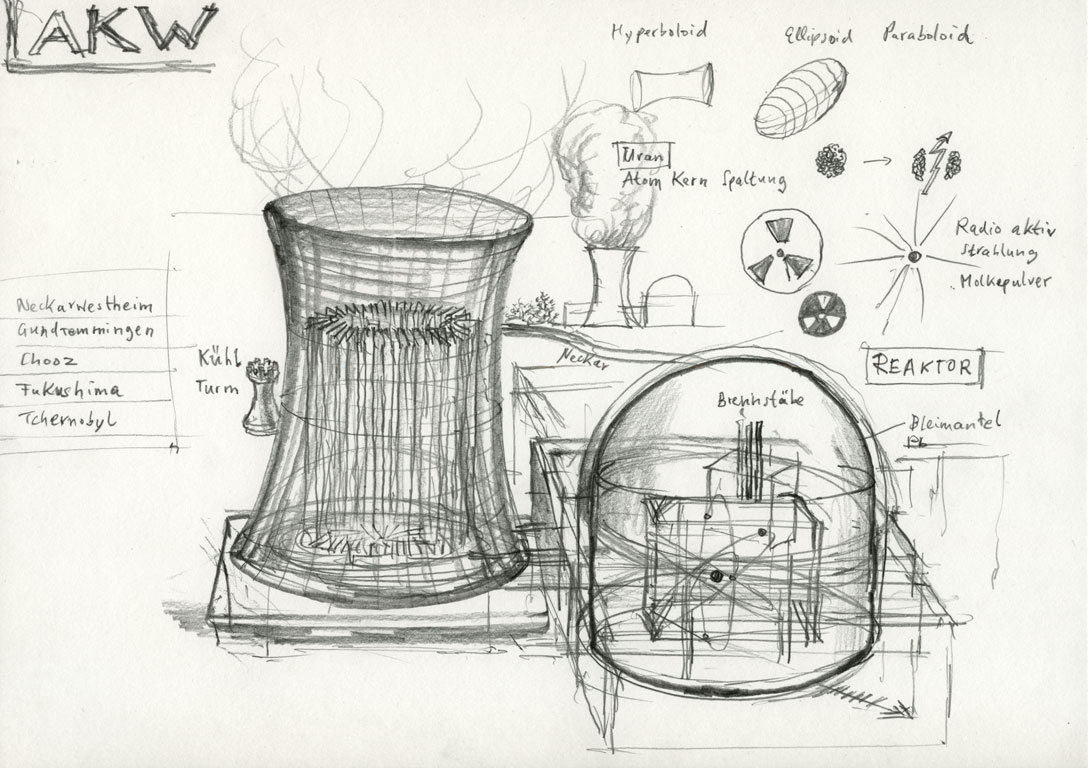 AKW
Hyperboloid
Ellipsoid
Paraboloid
Uran
Atom Kern Spaltung
Radio aktiv
Strahlung
Molkepulver
Neckarwestheim
Gundremmingen
Chooz
Fukushima
Tchernobyl
Kühl
Turm
Neckar
REAKTOR
Brennstäbe
Bleimantel
Pb